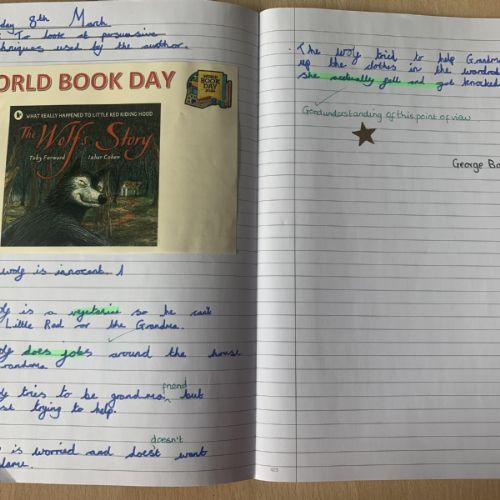 day 8th March
: To look at persuasive
chniques used by the author.
ORLD BOOK DAY
WORLD BOOK DAY
WHAT REALLY HAPPENED TO LITTLE RED RIDING HOOD
The Wolf's Story
Toby Forward
Izhar Cohen
wolf is innocent
is a vegetarian so he can't
Little Red or the Grandma.
does jobs around the house
randma
friend
tries to be grandma but
se trying to help.
doesn't
is worried and doest want
lame.
. The wolf tried to help Grandma
up the clothes in the wardrob
she actually fell and got knocked
Good understanding of this point of view
George Ba